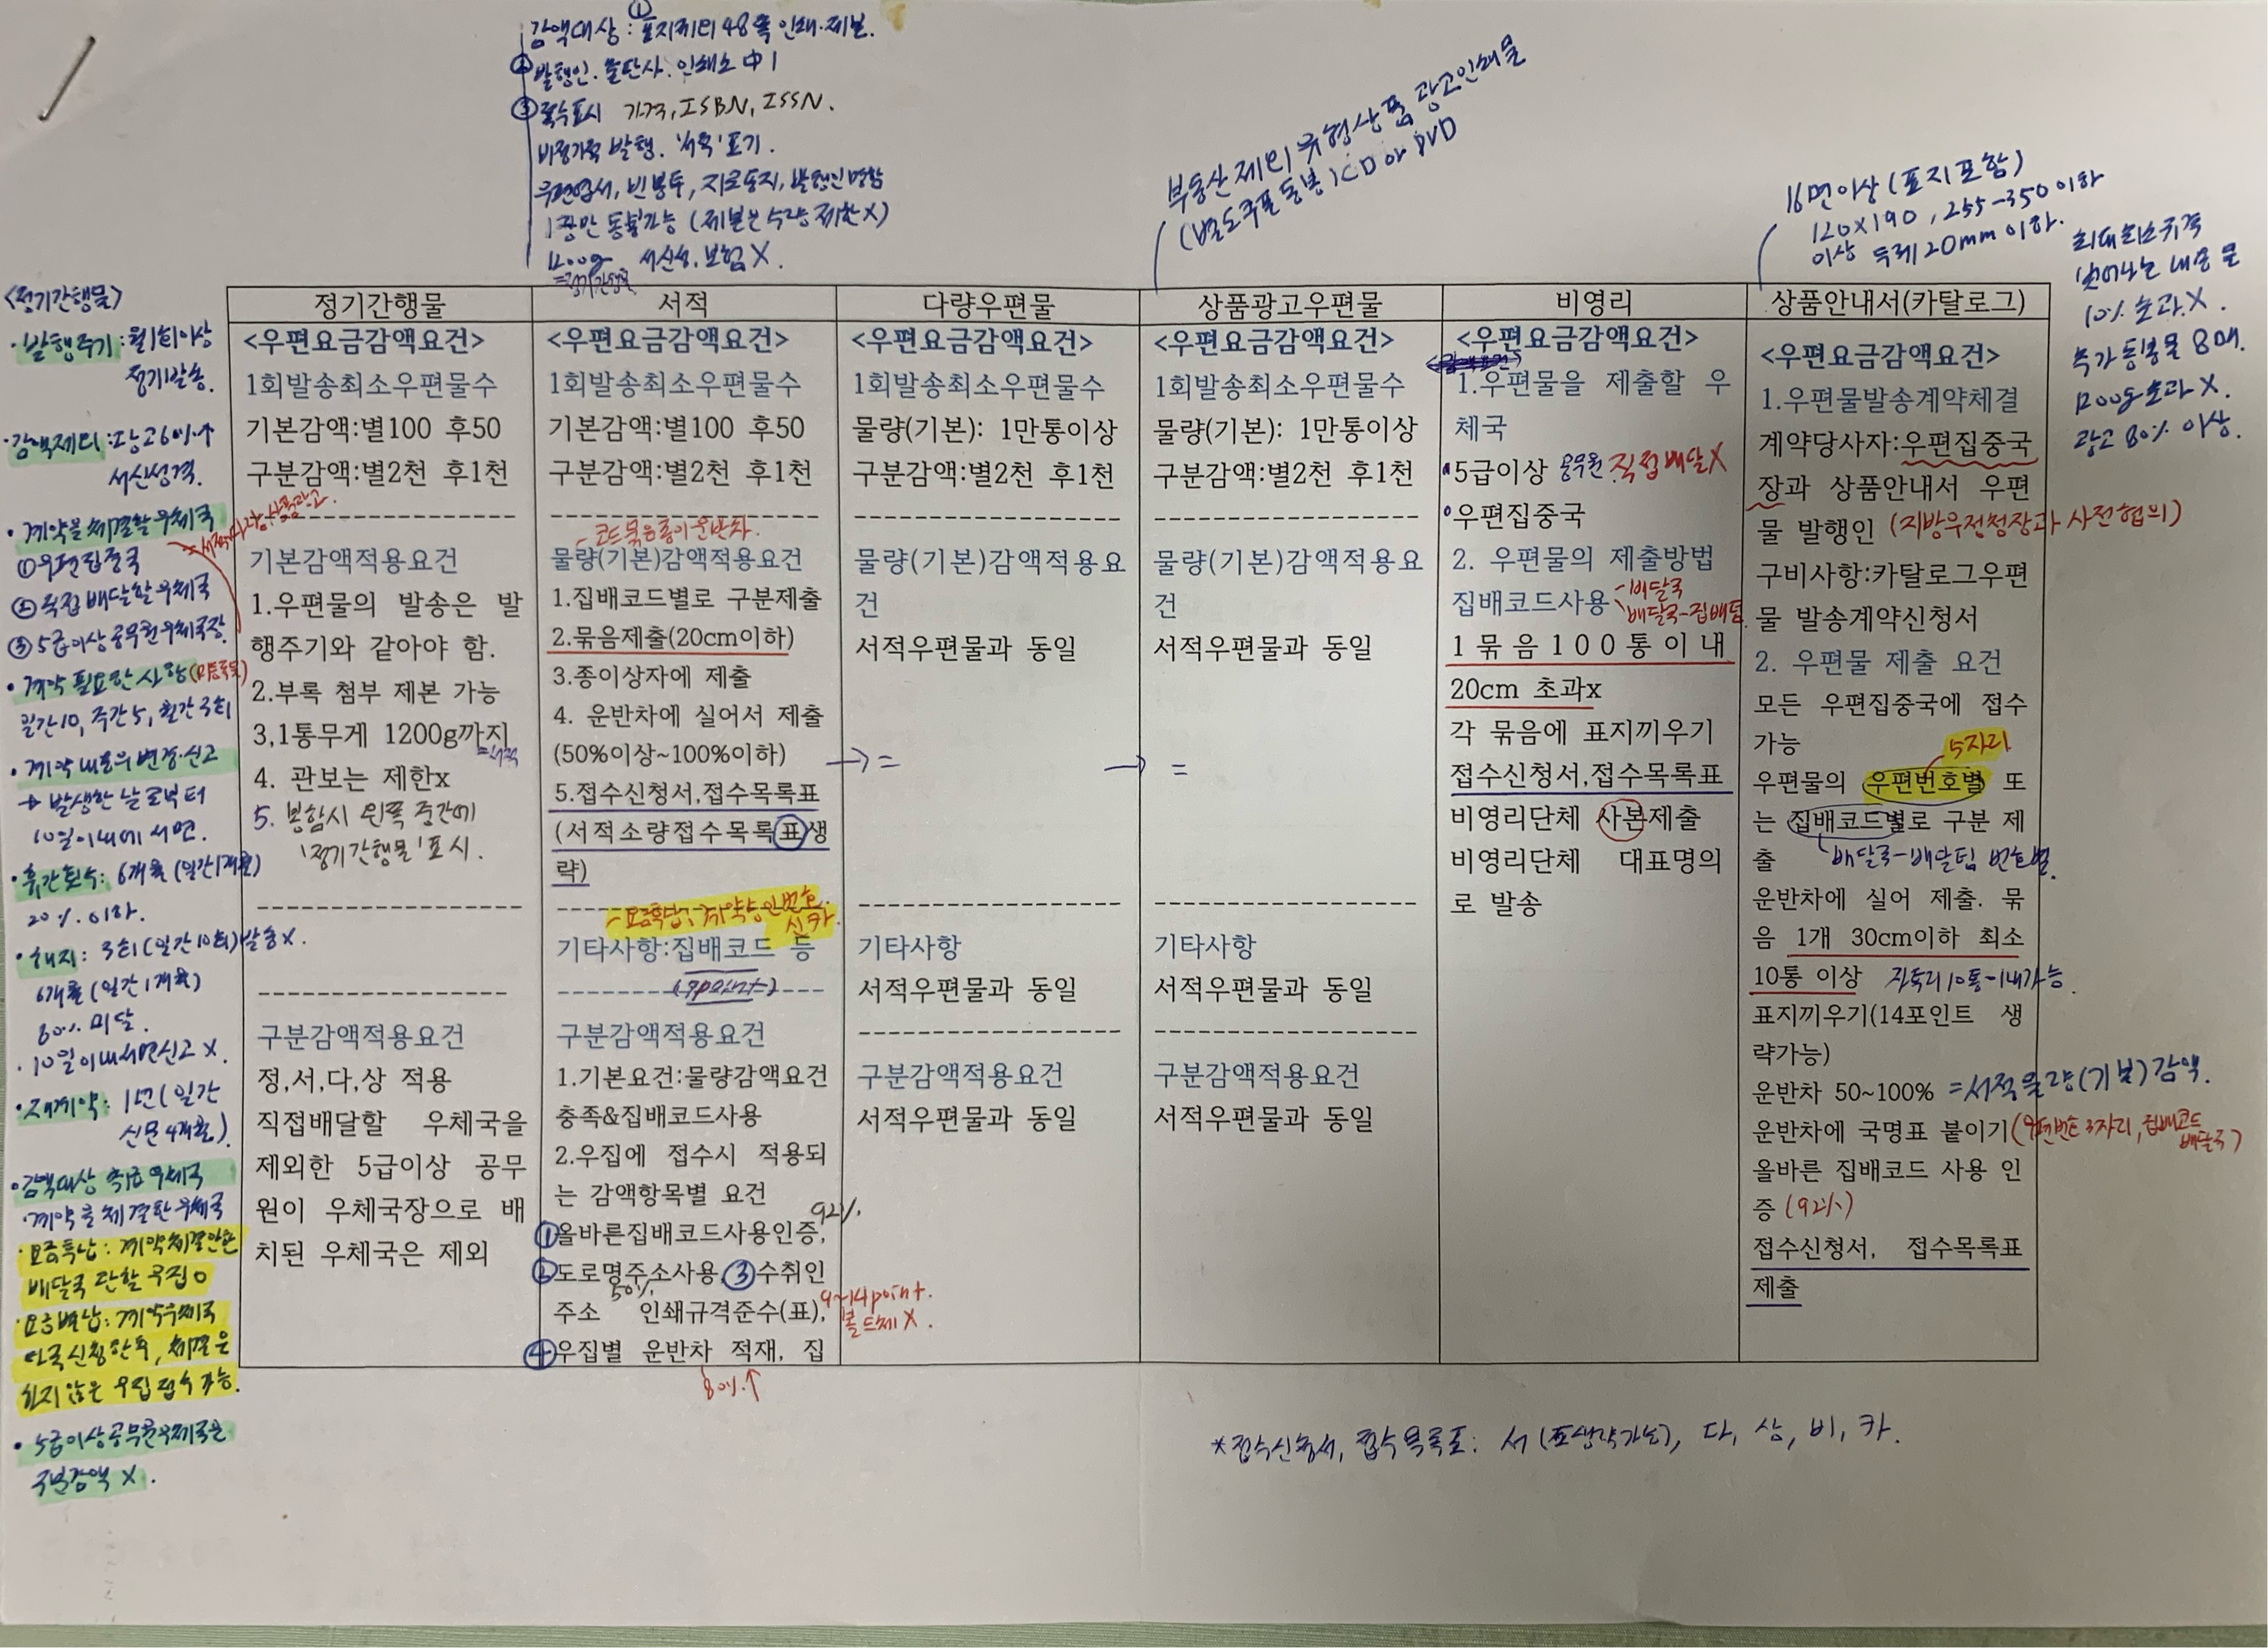 감액대상: ①표지제외 48쪽 인쇄·제본.
②발행인. 출판사. 인쇄소 中 1
③쪽수표시 가격, ISBN, ISSN.
비정기적 발행. '서적' 표기.
우편엽서, 빈봉투, 지로통지, 발행인명함
1장만 동봉가능 (제본은 수량제한X)
1200g 서신성, 보험X.
=정기간행물
부동산 제외 유형상품 광고인쇄물
(별도쿠폰동봉) CD or DVD
16면이상 (표지포함)
120x190, 255-350이하
이상 두께 20mm이하.
최대최소규격
벗어나는 내용물
10% 초과X.
추가동봉물 8매.
1200g초과X.
광고 80% 이상.
<정기간행물>
·발행주기: 월1회이상
정기발송.
·감액제외: 광고60%↑
서신성격.
·계약을 체결할 우체국
①우편집중국
②직접배달할우체국
③5급이상공무원우체국장.
·계약 필요한 사항
일간10, 주간5, 월간3회
·계약내용의 변경신고
→ 발생한 날로부터
10일이내에 서면.
·휴간횟수: 6개월 (일간1개월)
20%. 이하.
·해지: 3회(일간10회)발송X.
6개월 (일간1개월)
80% 미달.
·10일이내서면신고X.
·재계약: 1년(일간
신문4개월).
·감액대상 취급 우체국
·계약을 체결한 우체국
·요금후납: 계약체결안한
배달국 관할 우집O
·요금별납: 계약우체국
타국신청한후, 체결은
하지않은 우집접수가능.
·5급이상공무원우체국은
구분감액X.
정기간행물
<우편요금감액요건>
1회발송최소우편물수
기본감액:별100 후50
구분감액:별2천 후1천
기본감액적용요건
1.우편물의 발송은 발
행주기와 같아야 함.
2.부록 첨부 제본 가능
3,1통무게 1200g까지
=서적
4. 관보는 제한x
5. 봉함시 왼쪽 중간에
'정기간행물'표시.
구분감액적용요건
정,서,다,상 적용
직접배달할 우체국을
제외한 5급이상 공무
원이 우체국장으로 배
치된 우체국은 제외
서적
<우편요금감액요건>
1회발송최소우편물수
기본감액:별100 후50
구분감액:별2천 후1천
- 코드묶음종이운반차.
물량(기본)감액적용요건
1.집배코드별로 구분제출
2.묶음제출(20cm이하)
3.종이상자에 제출
4. 운반차에 실어서 제출
(50%이상~100%이하)
5.접수신청서,접수목록표
(서적소량접수목록표생
략)
- 요금후납: 계약승인번호
기타사항:집배코드 등
(9point)
구분감액적용요건
1.기본요건:물량감액요건
충족&집배코드사용
2.우집에 접수시 적용되
는 감액항목별 요건
92%.
①올바른집배코드사용인증,
②도로명주소사용,③수취인
50%.
주소 인쇄규격준수(표),
9~14point.
볼드체X.
④우집별 운반차 적재, 집
80%.↑
다량우편물
<우편요금감액요건>
1회발송최소우편물수
물량(기본): 1만통이상
구분감액:별2천 후1천
물량(기본)감액적용요
건
서적우편물과 동일
→ =
기타사항
서적우편물과 동일
구분감액적용요건
서적우편물과 동일
상품광고우편물
<우편요금감액요건>
1회발송최소우편물수
물량(기본): 1만통이상
구분감액:별2천 후1천
물량(기본)감액적용요
건
서적우편물과 동일
→ =
기타사항
서적우편물과 동일
구분감액적용요건
서적우편물과 동일
비영리
<우편요금감액요건>
1.우편물을 제출할 우
체국
5급이상 공무원 직접배달X
우편집중국
2. 우편물의 제출방법
집배코드사용
- 배달국
배달국-집배팀
1묶음100통이내
20cm 초과x
각 묶음에 표지끼우기
접수신청서,접수목록표
비영리단체 사본제출
비영리단체 대표명의
로 발송
상품안내서(카탈로그)
<우편요금감액요건>
1.우편물발송계약체결
계약당사자:우편집중국
장과 상품안내서 우편
물 발행인 (지방우정청장과 사전협의)
구비사항:카탈로그우편
물 발송계약신청서
2. 우편물 제출 요건
모든 우편집중국에 접수
가능
5자리
우편물의 우편번호별 또
는 집배코드별로 구분 제
출 배달국-배달팀 번호별.
운반차에 실어 제출. 묶
음 1개 30cm이하 최소
10통 이상 자투리10통-이내가능.
표지끼우기(14포인트 생
략가능)
운반차 50~100% =서적물량(기본)감액.
운반차에 국명표 붙이기(우편번호3자리, 집배코드
배달국)
올바른 집배코드 사용 인
증 (92%)
접수신청서, 접수목록표
제출
*접수신청서, 접수목록표: 서(표생략가능), 다, 상, 비, 카.